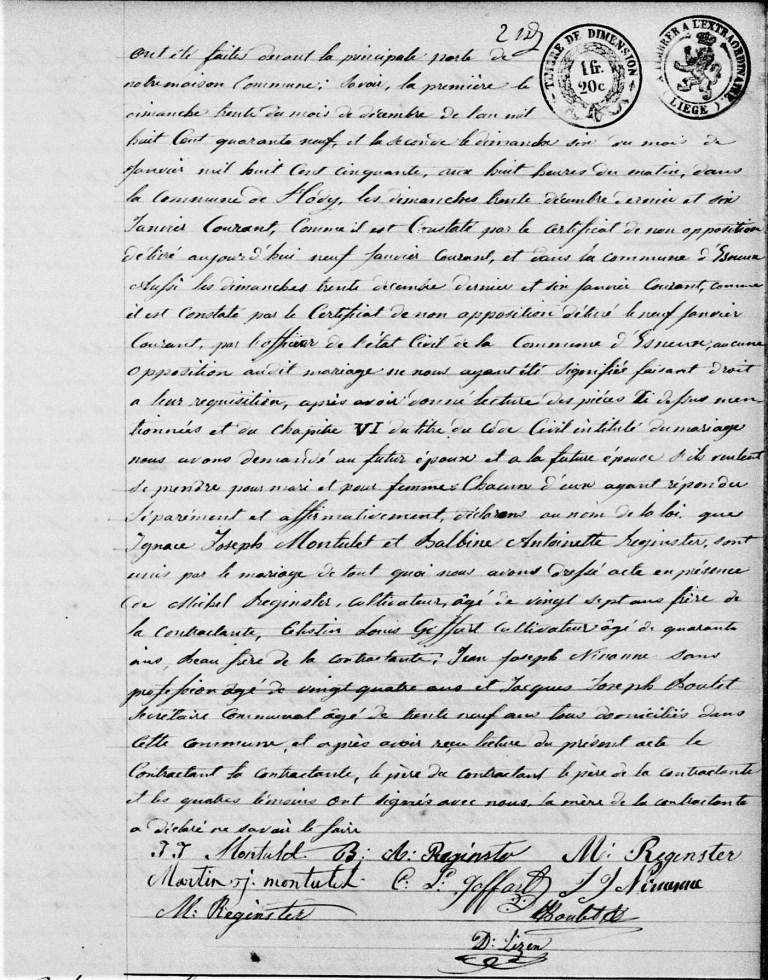 TIMBRE DE DIMENSION
1 fr.
20c
TIMBRER A L'EXTRAORDINAIRE
(LIEGE)
ont été faites devant la principale porte de
notre maison Commune; Savoir, la première le
dimanche trente du mois de décembre de l'an mil
huit Cent quarante neuf, et la seconde le dimanche six du mois de
Janvier mil huit Cent cinquante, aux huit heures du matin, dans
la Commune de Hody, les dimanches trente décembre dernier et six
Janvier Courant, Comme il est Constaté par le certificat de non opposition
délivré aujourd'hui neuf Janvier Courant, et dans la commune d'Esneux
Aussi les dimanches trente décembre dernier et six Janvier Courant, comme
il est Constaté par le Certificat de non opposition délivré le neuf Janvier
Courant, par l'officier de l'état Civil de la Commune d'Esneux, aucune
Opposition audit mariage ne nous ayant été Signifiée faisant droit
a leur requisition, après avoir donné lecture des pièces Ci dessus men-
tionnées et du Chapitre VI du titre du Code Civil intitulé du mariage
nous avons demandé au futur époux et a la future épouse s'ils veulent
se prendre pour mari et pour femme: Chacun d'eux ayant répondu
Séparément et affirmativement, déclarons au nom de la loi que
Ignace Joseph Montulet et Balbine Antoinette Reginster, sont
unis par le mariage de tout quoi nous avons dressé acte en présence
de Michel Reginster, cultivateur, âgé de vingt sept ans frère de
la Contractante, Célestin Louis Goffart Cultivateur âgé de quarante
ans, Beau frère de la contractante, Jean Joseph Ninanne sans
profession âgé de vingt quatre ans et Jacques Joseph Boulet
Secrétaire Communal âgé de trente neuf ans tous domiciliés dans
Cette Commune, et après avoir reçu lecture du présent acte le
Contractant la contractante, le père du contractant le père de la contractante
et les quatres témoins ont signés avec nous, la mère de la contractante
a déclaré ne savoir le faire
J J Montulet B: A: Reginster M: Reginster
Martin j. montulet C: L: Goffart J J Ninanne
M: Reginster Boulet
D: Lizen